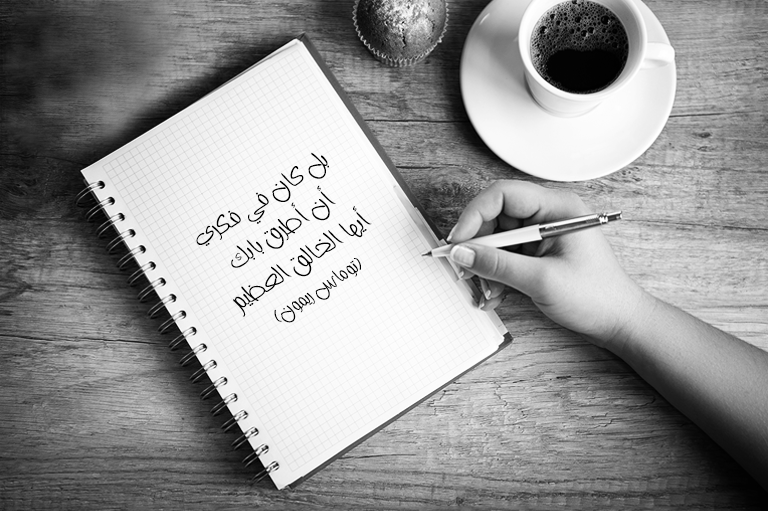 بل كان في فكري
أن أطرق بابك
أيها الخالق العظيم
(توماس ريمون)